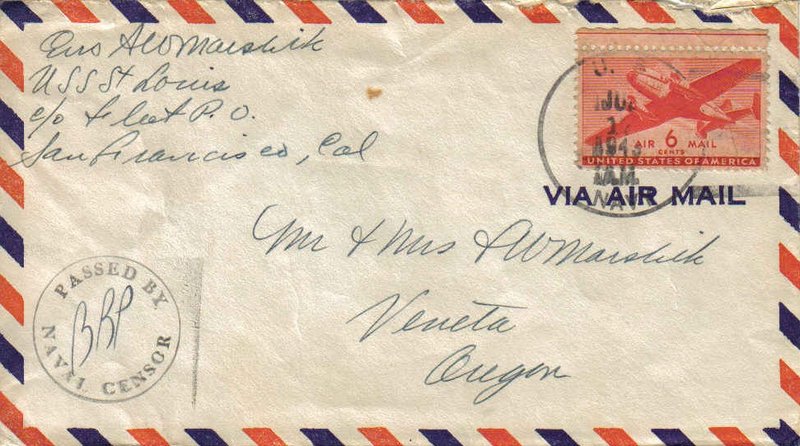 Ens AW Marshik
USS St Louis
c/o Fleet P.O.
San Francisco, Cal
U.
1943
A.M.
NAVY
AIR 6 MAIL
CENTS
UNITED STATES OF AMERICA
VIA AIR MAIL
Mr & Mrs AW Marshik
Veneta
Oregon
PASSED BY
BBP
NAVAL CENSOR